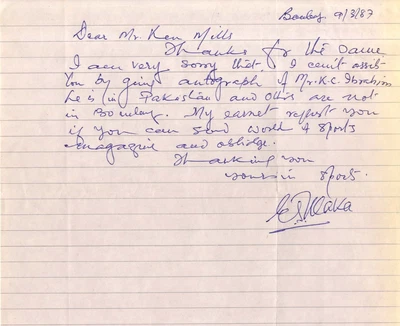 Bombay 9/3/87
Dear Mr. Ken Mills
Thanks for the same
I am very sorry that I can't assist
you by giving autograph of Mr. K.C. Ibrahim
he is in Pakistan and others are not
in Bombay. My earnest request you
if you can send World of Sports
magazine and oblidge.
Thanking you
yours in sports.